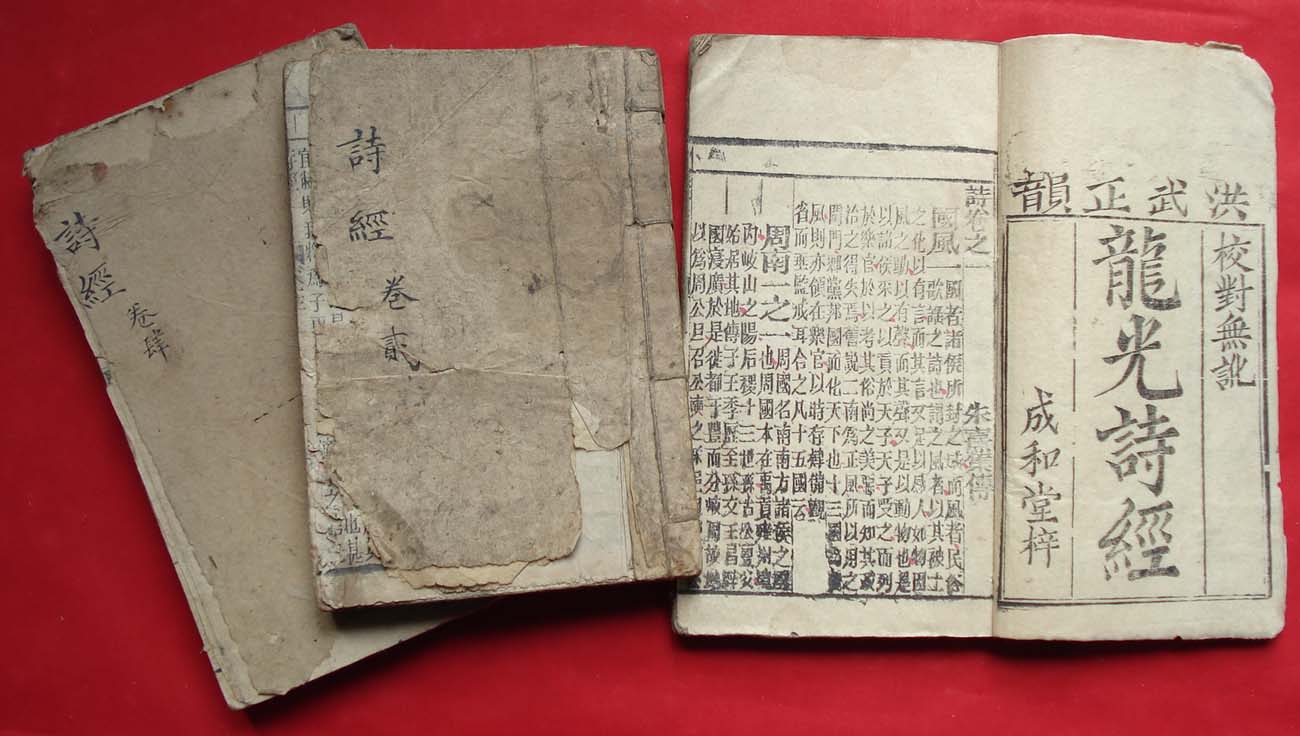 洪武正韻
校對無訛
龍光詩經
成和堂梓
詩卷之一
朱熹集傳
國風一國者諸侯所封之域而風者民俗
歌謠之詩也謂之風者以其被上
之化以有言而其言又足以感人如物因
風之動以有聲而其聲又足以動物也是
以諸侯采之以貢於天子天子受之而列
於樂官於以考其俗尚之美惡而知其政
治之得失焉舊說二南為正風所以用之
閨門鄉黨邦國而化天下也十三國為變
風則亦領在樂官以時存肄備觀
省而垂監戒耳合之凡十五國云
周南一之一周國名南南方諸侯之國
也周國本在禹貢雍州境
內岐山之陽后稷十三世孫古公亶父
始居其地傳子王季歷至孫文王昌辟
國寖廣於是徙都于豐而分岐周故地
以為周公旦召公奭之采邑
詩經
卷貳
詩經
卷肆